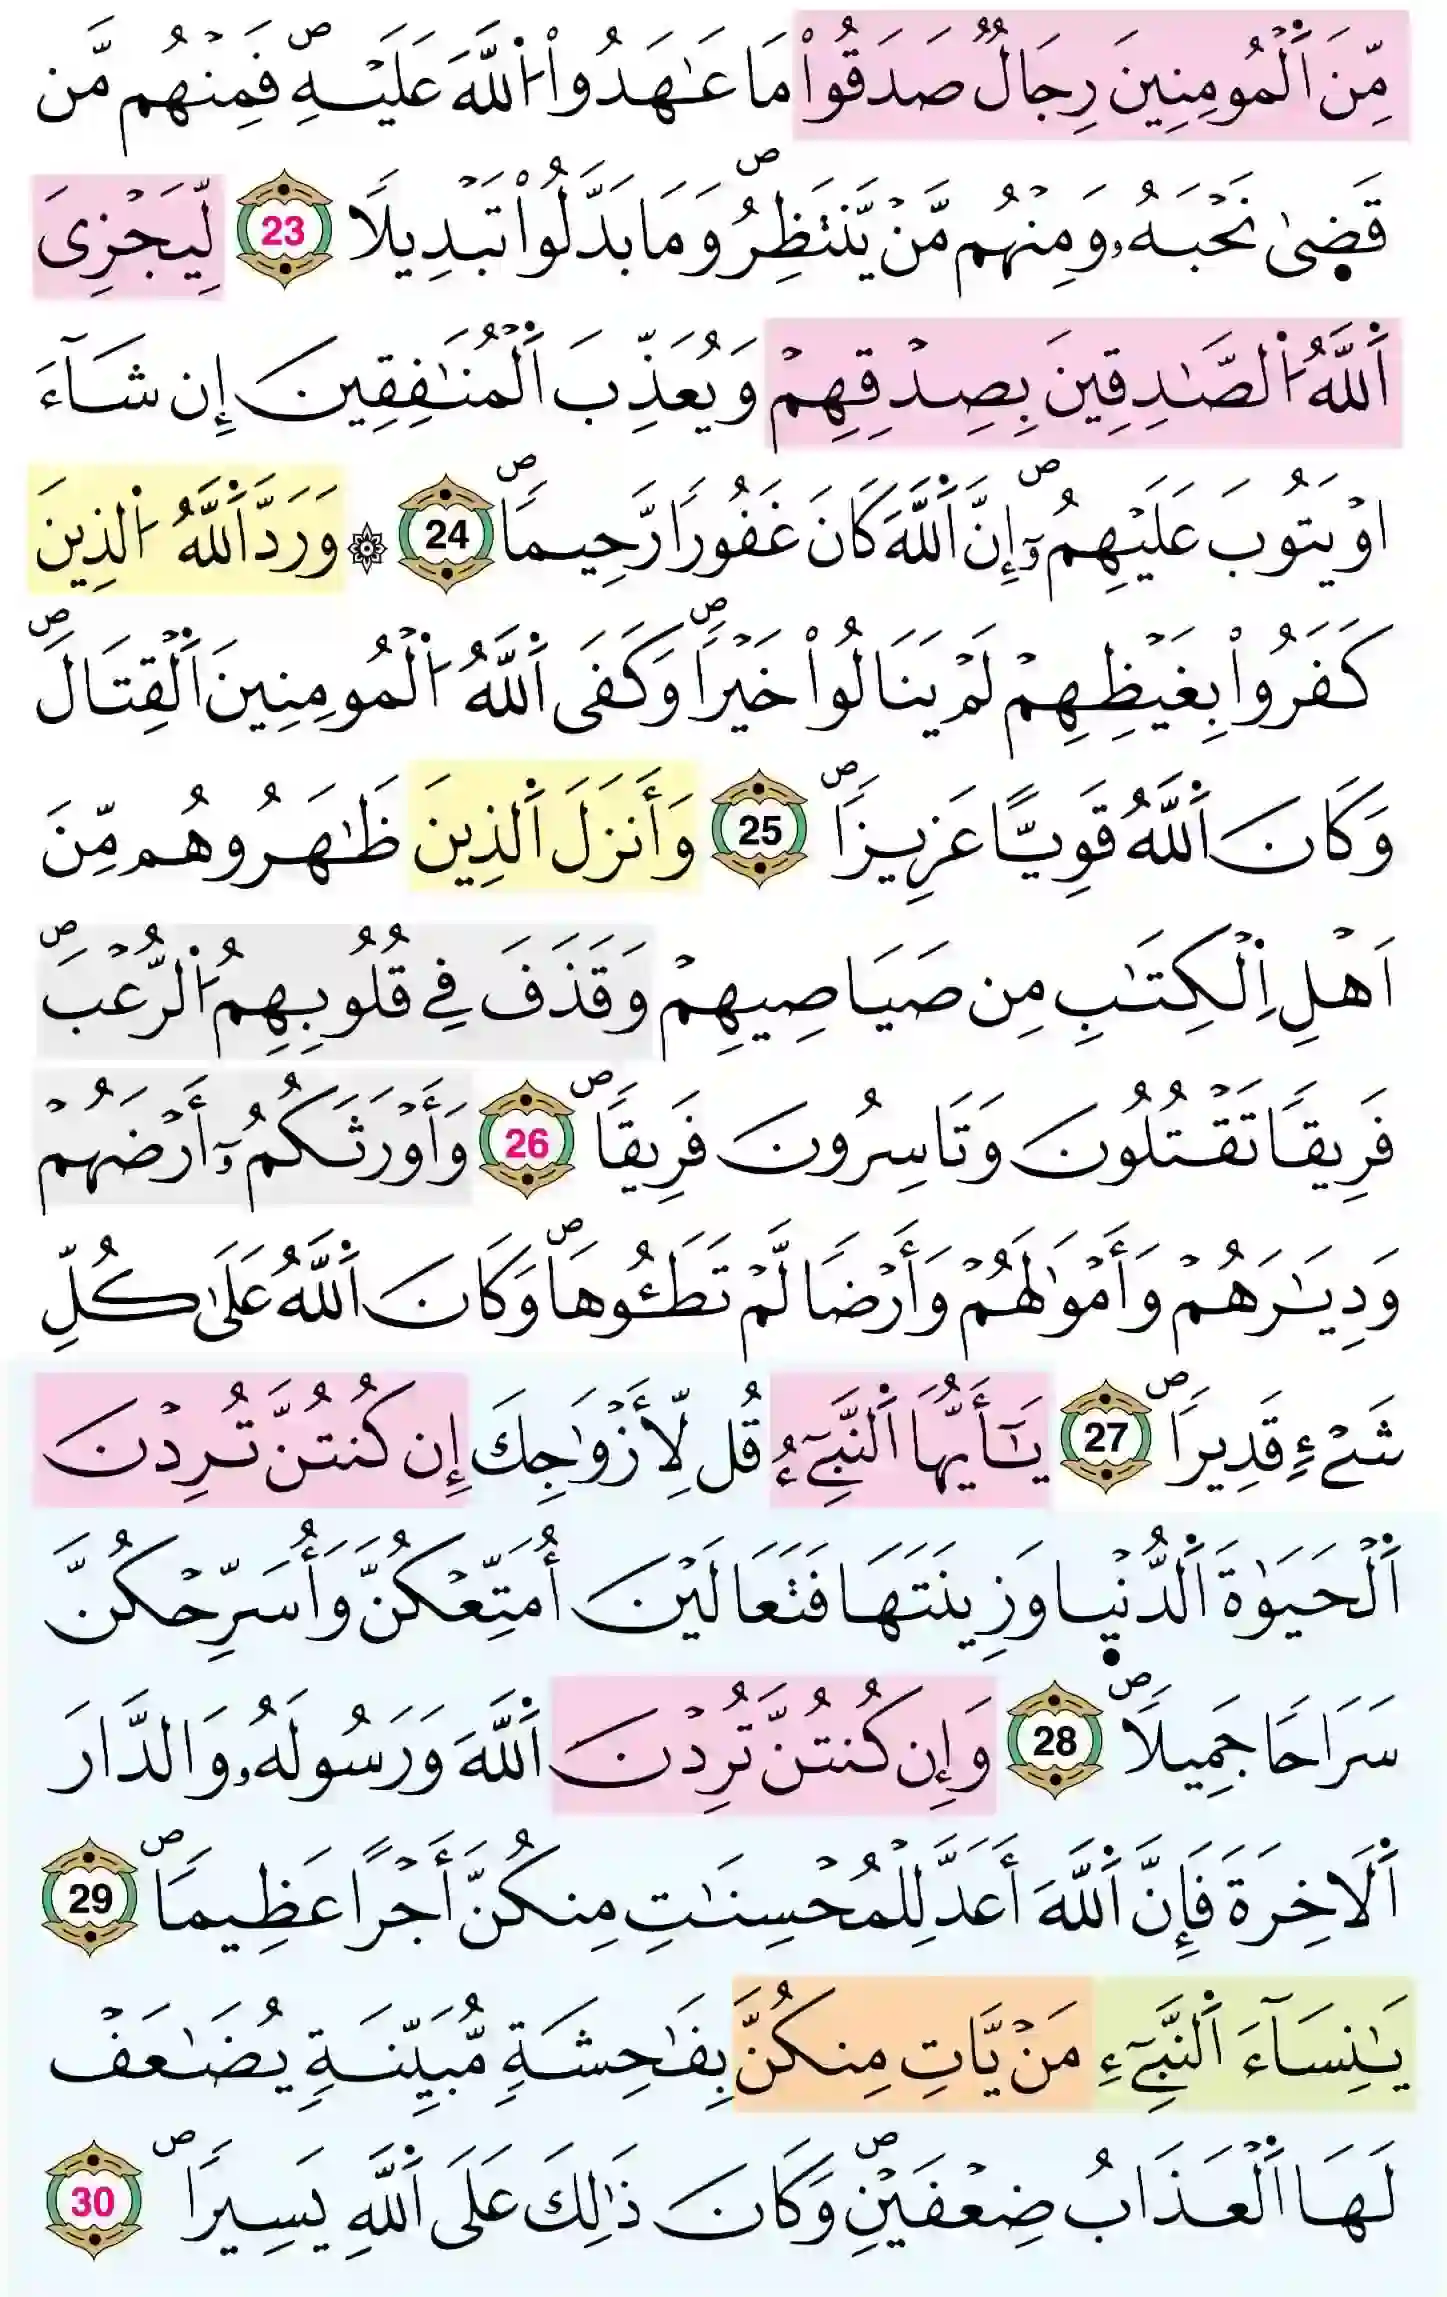 مِّنَ اَ۬لْمُومِنِينَ رِجَالٌ صَدَقُواْ مَا عَٰهَدُواْ اُ۬للَّهَ عَلَيْهِۖ فَمِنْهُم مَّن
قَض۪ىٰ نَحْبَهُۥ وَمِنْهُم مَّنْ يَّنتَظِرُۖ وَمَا بَدَّلُواْ تَبْدِيلاٗ 23 لِّيَجْزِيَ
اَ۬للَّهُ اُ۬لصَّٰدِقِينَ بِصِدْقِهِمْ وَيُعَذِّبَ اَ۬لْمُنَٰفِقِينَ إِن شَآءَ
اَوْ يَتُوبَ عَلَيْهِمُۥٓۖ إِنَّ اَ۬للَّهَ كَانَ غَفُوراٗ رَّحِيماٗۖ 24 ۞ وَرَدَّ اَ۬للَّهُ اُ۬لذِينَ
كَفَرُواْ بِغَيْظِهِمْ لَمْ يَنَالُواْ خَيْراٗۖ وَكَفَى اَ۬للَّهُ اُ۬لْمُومِنِينَ اَ۬لْقِتَالَۖ
وَكَانَ اَ۬للَّهُ قَوِيّاً عَزِيزاٗۖ 25 وَأَنزَلَ اَ۬لذِينَ ظَٰهَرُوهُم مِّنَ
اَهْلِ اِ۬لْكِتَٰبِ مِن صَيَاصِيهِمْ وَقَذَفَ فِے قُلُوبِهِمُ اُ۬لرُّعْبَۖ
فَرِيقاٗ تَقْتُلُونَ وَتَاسِرُونَ فَرِيقاٗۖ 26 وَأَوْرَثَكُمُۥٓ أَرْضَهُمْ
وَدِيَٰرَهُمْ وَأَمْوَٰلَهُمْ وَأَرْضاٗ لَّمْ تَطَـُٔوهَاۖ وَكَانَ اَ۬للَّهُ عَلَىٰ كُلِّ
شَےْءٖ قَدِيراٗۖ 27 يَٰٓأَيُّهَا اَ۬لنَّبِےٓءُ قُل لِّأَزْوَٰجِكَ إِن كُنتُنَّ تُرِدْنَ
اَ۬لْحَيَوٰةَ اَ۬لدُّنْي۪ا وَزِينَتَهَا فَتَعَالَيْنَ أُمَتِّعْكُنَّ وَأُسَرِّحْكُنَّ
سَرَاحاٗ جَمِيلاٗۖ 28 وَإِن كُنتُنَّ تُرِدْنَ اَ۬للَّهَ وَرَسُولَهُۥ وَالدَّارَ
اَ۬لَاخِرَةَ فَإِنَّ اَ۬للَّهَ أَعَدَّ لِلْمُحْسِنَٰتِ مِنكُنَّ أَجْراً عَظِيماٗۖ 29
يَٰنِسَآءَ اَ۬لنَّبِےٓءِ مَنْ يَّاتِ مِنكُنَّ بِفَٰحِشَةٖ مُّبَيِّنَةٖ يُضَٰعَفْ
لَهَا اَ۬لْعَذَابُ ضِعْفَيْنِۖ وَكَانَ ذَٰلِكَ عَلَى اَ۬للَّهِ يَسِيراٗۖ 30